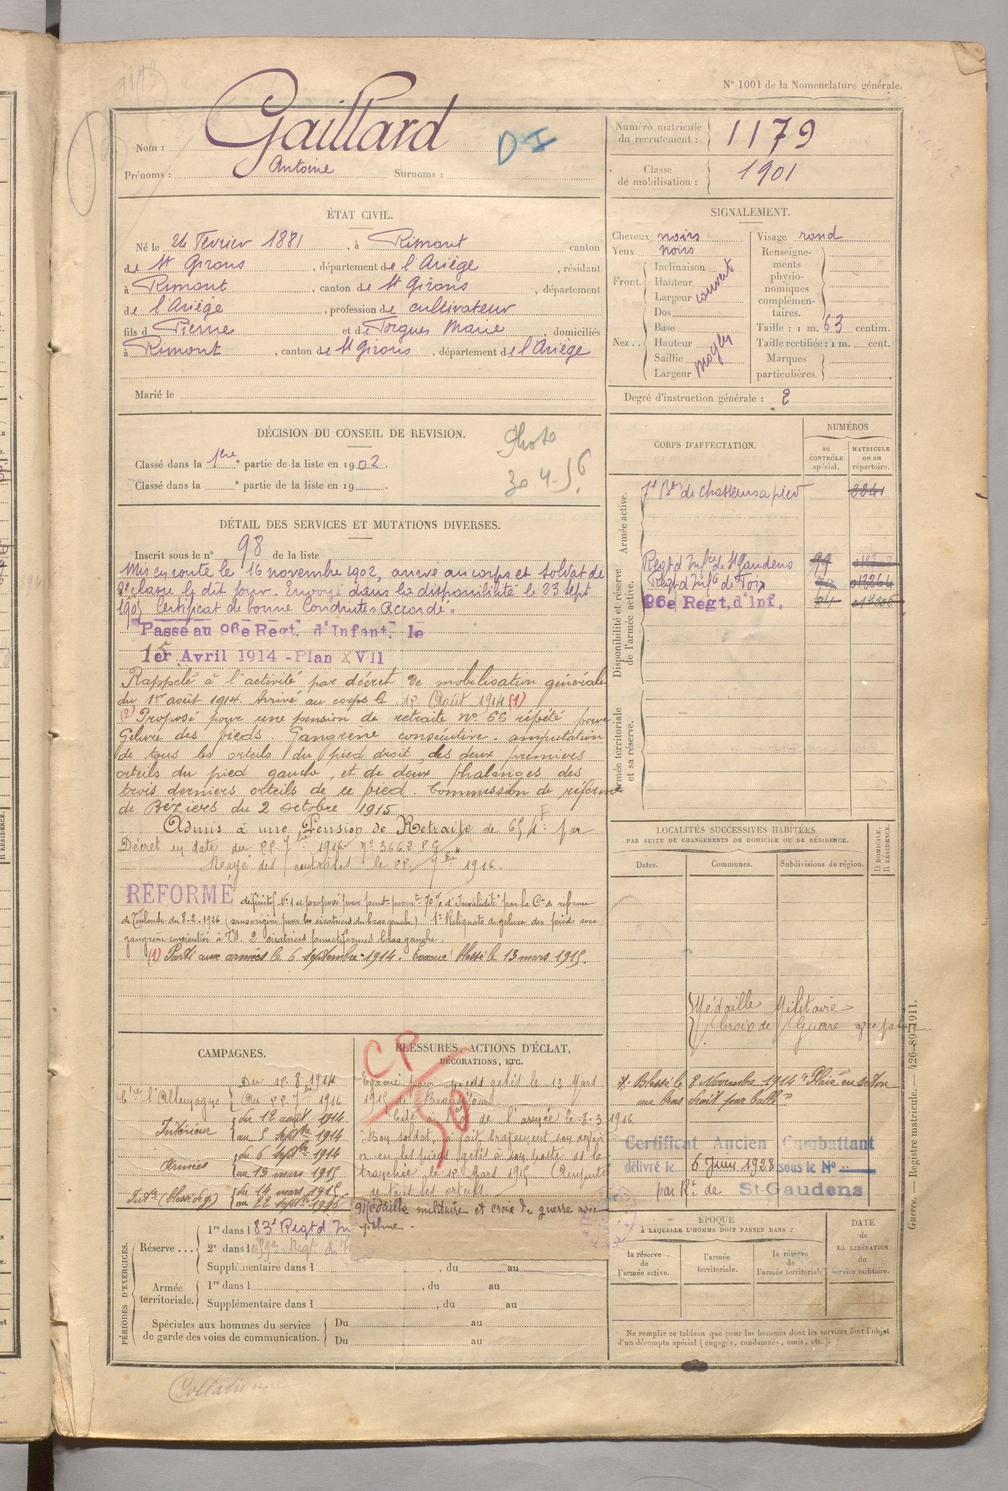 N° 1001 de la Nomenclature générale.
Nom : Gaillard
Prénoms : Antoine Surnoms :
D I
Numéro matricule du recrutement : 1179
Classe de mobilisation : 1901
ÉTAT CIVIL.
Né le 24 Février 1881, à Rimont canton
de St Girons, département de l'Ariège, résidant
à Rimont, canton de St Girons, département
de l'Ariège, profession de cultivateur
fils d Pierre et de Torgues Marie, domiciliés
à Rimont, canton de St Girons, département de l'Ariège
Marié le
SIGNALEMENT.
Cheveux noirs
Yeux noirs
Front. Inclinaison
Hauteur
Largeur couvert
Nez. Dos
Base
Hauteur
Saillie
Largeur moyen
Visage rond
Renseignements physionomiques complémentaires.
Taille : 1 m. 63 centim.
Taille rectifiée : 1 m. cent.
Marques particulières.
Degré d'instruction générale : 2
DÉCISION DU CONSEIL DE REVISION.
Classé dans la 1ère partie de la liste en 1902.
Classé dans la partie de la liste en 19
Photo
CORPS D'AFFECTATION.
NUMÉROS
au CONTRÔLE spécial.
MATRICULE ou au répertoire.
Armée active.
7e Bon de chasseurs à pied 3841
Disponibilité et réserve de l'armée active.
Regt d'Infie de St Gaudens
Regt d'Infie de Foix
96e Regt. d'Inf.
Armée territoriale et sa réserve.
DÉTAIL DES SERVICES ET MUTATIONS DIVERSES.
Inscrit sous le n° 98 de la liste
Mis en route le 16 novembre 1902, arrivé au corps et soldat de
2e classe le dit jour. Envoyé dans la disponibilité le 23 sept
1905 Certificat de bonne Conduite "Accordé"
Passé au 96e Regt. d'Infant. le
1er Avril 1914 - Plan XVII
Rappelé à l'activité par décret de mobilisation générale
du 1er août 1914. Arrivé au corps le 12 Août 1914 (1)
(2) Proposé pour une pension de retraite n° 66 répété pour
Gelure des pieds. Gangrène consécutive - amputation
de tous les orteils du pied droit, des deux premiers
orteils du pied gauche, et de deux phalanges des
trois derniers orteils de ce pied. Commission de réforme
de Béziers du 2 octobre 1915
Admis à une Pension de Retraite de
Décret en date du 22 7bre 1916
Rayé des contrôles le 22 7bre 1916.
RÉFORMÉ définitif N° 1 et proposé pour pens. perm. 70% d'Invalidité par la Con de réforme
de Toulouse du 8-2-1926
(1) Parti aux armées le 6 septembre 1914. Evacué blessé le 13 mars 1915.
LOCALITÉS SUCCESSIVES HABITÉES
PAR SUITE DE CHANGEMENTS DE DOMICILE OU DE RÉSIDENCE.
Dates.
Communes.
Subdivisions de région.
D. DOMICILE. R. RÉSIDENCE.
Médaille Militaire
Croix de Guerre
CAMPAGNES.
Cᵗʳᵉ l'Allemagne Du 12.8.1914
Au 22 7bre 1916
Intérieur du 12 août 1914
au 5 septbre 1914
Armées du 6 septbre 1914
au 13 mars 1915
Intr (blessé de g) du 14 mars 1915
BLESSURES, ACTIONS D'ÉCLAT,
DÉCORATIONS, ETC.
C P
Evacué pour pieds gelés le 13 Mars
1915 de Beauséjour
Cité à l'o. de l'armée le 8-3-1916
Bon soldat, a fait bravement son devoir
a eu les pieds gelés à son poste dans la
tranchée le 12 Mars 1915 (Amputé
de tous les orteils
Médaille militaire et croix de guerre avec
palme.
Blessé le 8 Novembre 1914 "Plaie en séton
au bras droit par balle"
Certificat Ancien Combattant
délivré le 6 Juin 1928 sous le N°
par Rt de St-Gaudens
PÉRIODES D'EXERCICES.
Réserve... 1re dans l 83e Regt d'In
2e dans l
Supplémentaire dans l , du au
Armée territoriale. 1re dans l , du au
Supplémentaire dans l , du au
Spéciales aux hommes du service de garde des voies de communication.
Du au
Du au
ÉPOQUE
À LAQUELLE L'HOMME DOIT PASSER DANS :
la réserve de l'armée active.
l'armée territoriale.
la réserve de l'armée territoriale
DATE DE LA LIBÉRATION du service militaire.
Ne remplir ce tableau que pour les hommes dont les services font l'objet
d'un décompte spécial (engagés, condamnés, omis, etc.).
Guerre. — Registre matricule. — 426-89-1911.